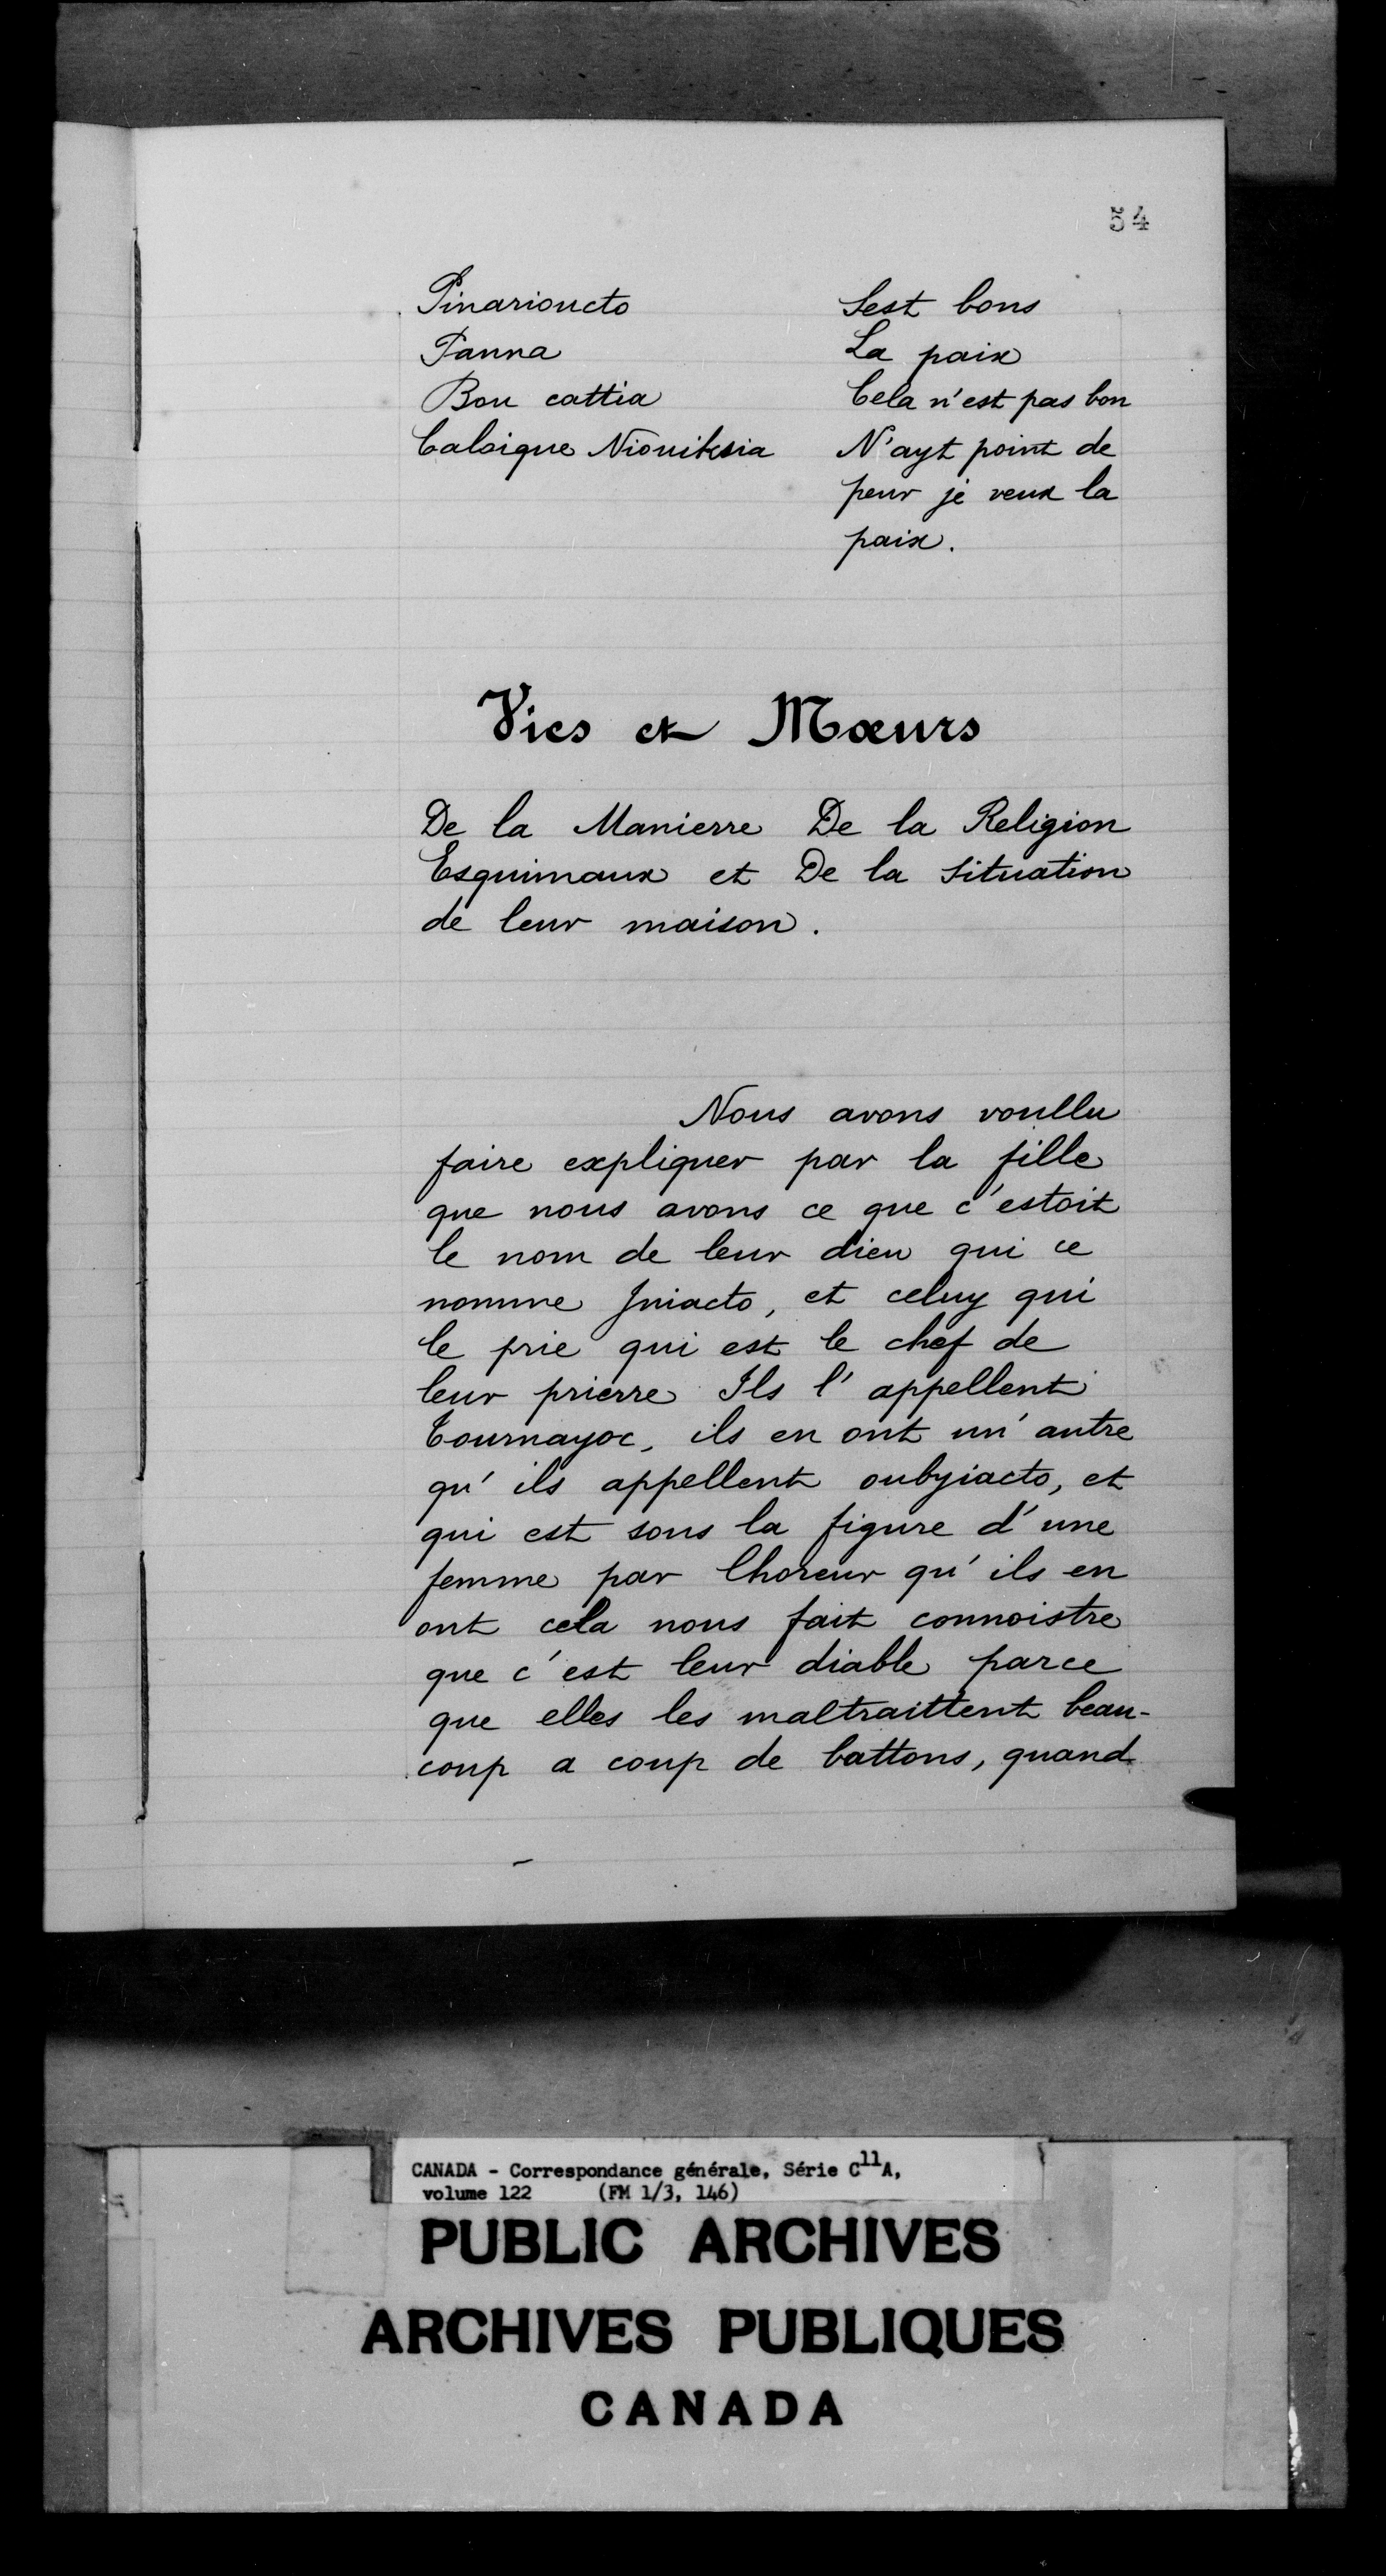 54
Pinarioucto Sest bons
Panna La paix
Bou cattia Cela n'est pas bon
Calsigue Niouiksia N'ayt point de
peur je veux la
paix.
Vies et Mœurs
De la Manierre De la Religion
Esquimaux et De la situation
de leur maison.
Nous avons voullu
faire expliquer par la fille
que nous avons ce que c'estoit
le nom de leur dieu qui ce
nomme Iniacto, et celuy qui
le prie qui est le chef de
leur prierre Ils l'appellent
Tournayoc, ils en ont un'autre
qu'ils appellent oubyiacto, et
qui est sous la figure d'une
femme par lhoreur qu'ils en
ont cela nous fait connoistre
que c'est leur diable parce
que elles les maltraittent beau-
coup a coup de battons, quand
CANADA - Correspondance générale, Série C11A,
volume 122 (FM 1/3, 146)
PUBLIC ARCHIVES
ARCHIVES PUBLIQUES
CANADA